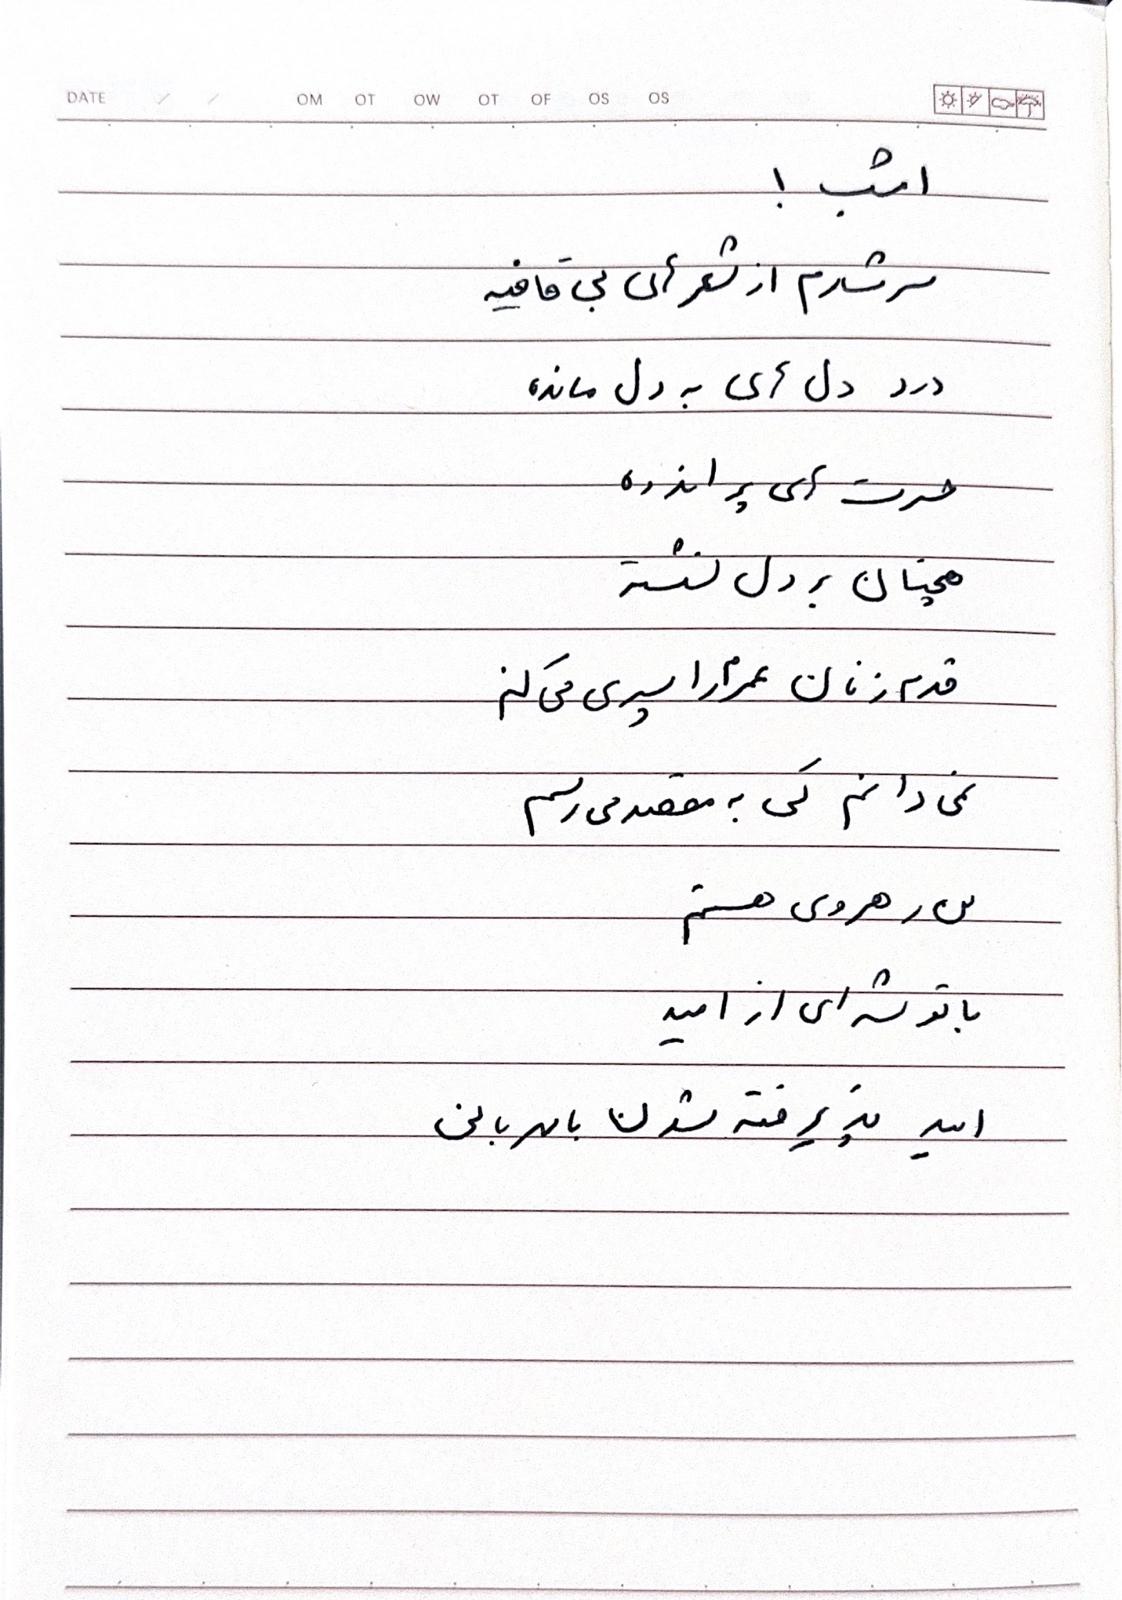 DATE / / OM OT OW OT OF OS OS
امشب !
سرشارم از شعرهای بی قافیه
درد دل های به دل مانده
حسرت های پر اندوه
همچنان بر دل نشسته
قدم زنان عمرم را سپری می کنم
نمی دانم کی به مقصد می رسم
من رهروی هستم
با توشه ای از امید
امید پذیرفته شدن با مهربانی